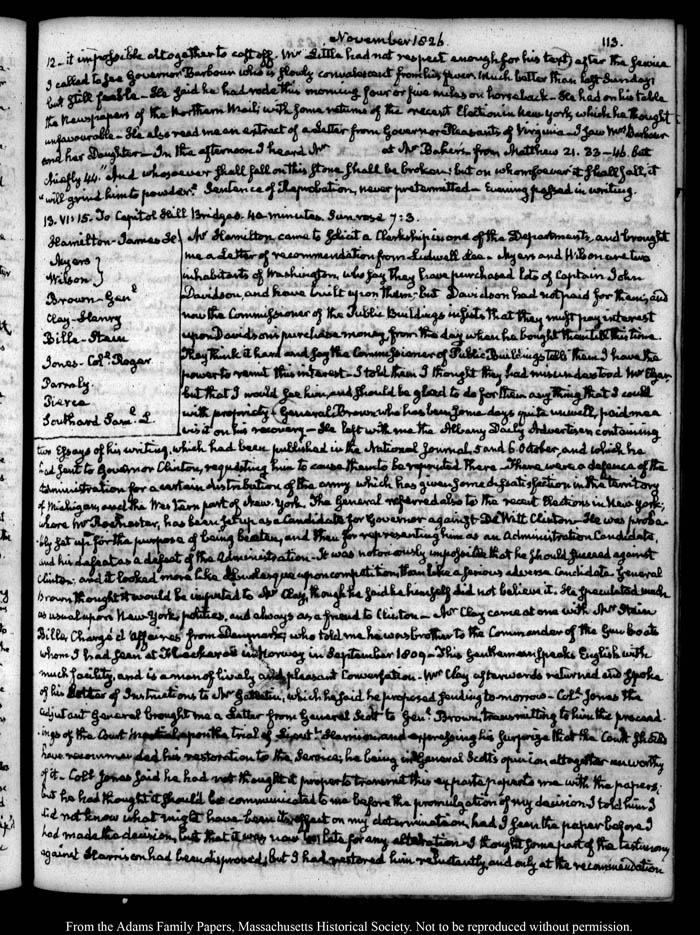 November 1826.
113.
12.- it impossible altogether to cast off. Mr Little had not respect enough for his text, after the service
I called to see Governor Barbour who is slowly convalescent from his fever. Much better than last Sunday;
but still feeble- He said he had rode this morning four or five miles on horseback- He had on his table
the Newspapers of the Northern Mail; with some returns of the recent Election in New York, which he thought
unfavourable- He also read me an extract of a Letter from Governor Pleasants of Virginia- I saw Mrs Barbour
and her Daughter- In the afternoon I heard Mr at Mr Baker's from Matthew 21. 33-46. but
chiefly 44. "And whosoever shall fall on this Stone, shall be broken; but on whomsoever it shall fall, it
"will grind him to powder." Sentence of Reprobation, never pretermitted- Evening passed in writing.
13. VI:15. To Capitol Hill Bridges. 40 minutes. Sun rose 7:3.
Hamilton- James Jr
Myers
Wilson
Brown- Genl
Clay- Henry
Bille- Stein
Jones- Coll. Roger
Parmly
Pierce
Southard Saml L.
Mr Hamilton came to solicit a Clerkship in one of the Departments, and brought
me a Letter of recommendation from Ludwell Lee- Myers and Wilson are two
inhabitants of Washington, who say they have purchased lots of Captain John
Davidson, and have built upon them; but Davidson had not paid for them, and
now the Commissioner of the Public Buildings insists that they must pay interest
upon Davidson's purchase money, from the day when he bought them till this time.
They think it hard and say the Commissioner of Public Buildings tells them I have the
power to remit this interest- I told them I thought they had misunderstood Mr Elgar
but that I would see him, and should be glad to do for them any thing that I could
with propriety- General Brown who has been some days quite unwell, paid me a
visit on his recovery- He left with me the Albany Daily Advertiser containing
two Essays of his writing, which had been published in the National Journal, 5 and 6 October, and which he
had sent to Governor Clinton, requesting him to cause them to be reprinted there- There were a defence of the
Administration for a certain distribution of the army which has given some dissatisfaction in the territory
of Michigan, and the Western part of New-York. The General referred also to the recent Elections in New York;
where Mr Rochester, has been set up as a Candidate for Governor against De Witt Clinton- He was proba-
-bly set up for the purpose of being beaten, and then for representing him as an Administration Candidate,
and his defeat as a defeat of the Administration- It was notoriously impossible that he should succeed against
Clinton; and it looked more like a burlesque upon competition, than like a serious adverse Candidate. General
Brown thought it would be imputed to Mr Clay, though he said he himself did not believe it. He speculated much
as usual upon New York, politics, and always as a friend to Clinton- Mr Clay came at one with Mr Stein
Bille, Chargé d'Affaires from Denmark; who told me he was brother to the Commander of the Gun boats
whom I had seen at in Norway in September 1809- This Gentleman speaks English with
much facility, and is a man of lively and pleasant Conversation- Mr Clay afterwards returned and spoke
of his Letter of Instructions to Mr Gallatin, which he said he proposed sending to-morrow- Coll. Jones the
adjutant General brought me a Letter from General Scott to Genl. Brown, transmitting to him the proceed-
-ings of the Court Martial upon the trial of Lieutt. Harrison, and expressing his surprize that the Court should
have recommended his restoration to the Service; he being in General Scott's opinion altogether unworthy
of it- Coll Jones said he had not thought it proper to transmit this exparte paper to me with the papers;
but he had thought it should be communicated to me before the promulgation of my decision. I told him I
did not know what might have been its effect on my determination, had I seen the paper before I
had made the decision, but that it was now too late for any alteration- I thought some part of the testimony
against Harrison had been disproved; but I had restored him reluctantly, and only at the recommendation
From the Adams Family Papers, Massachusetts Historical Society. Not to be reproduced without permission.